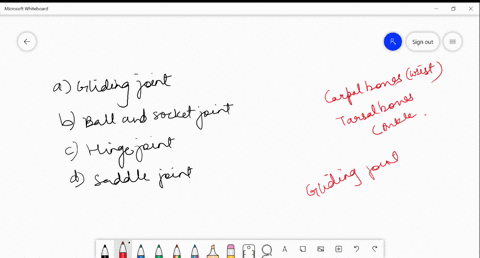 Microsoft Whiteboard
Sign out
a) Gliding joint
b) Ball and socket joint
c) Hinge joint
d) Saddle joint
Carpal bones (wrist)
Tarsal bones
(ankle.
Gliding joint